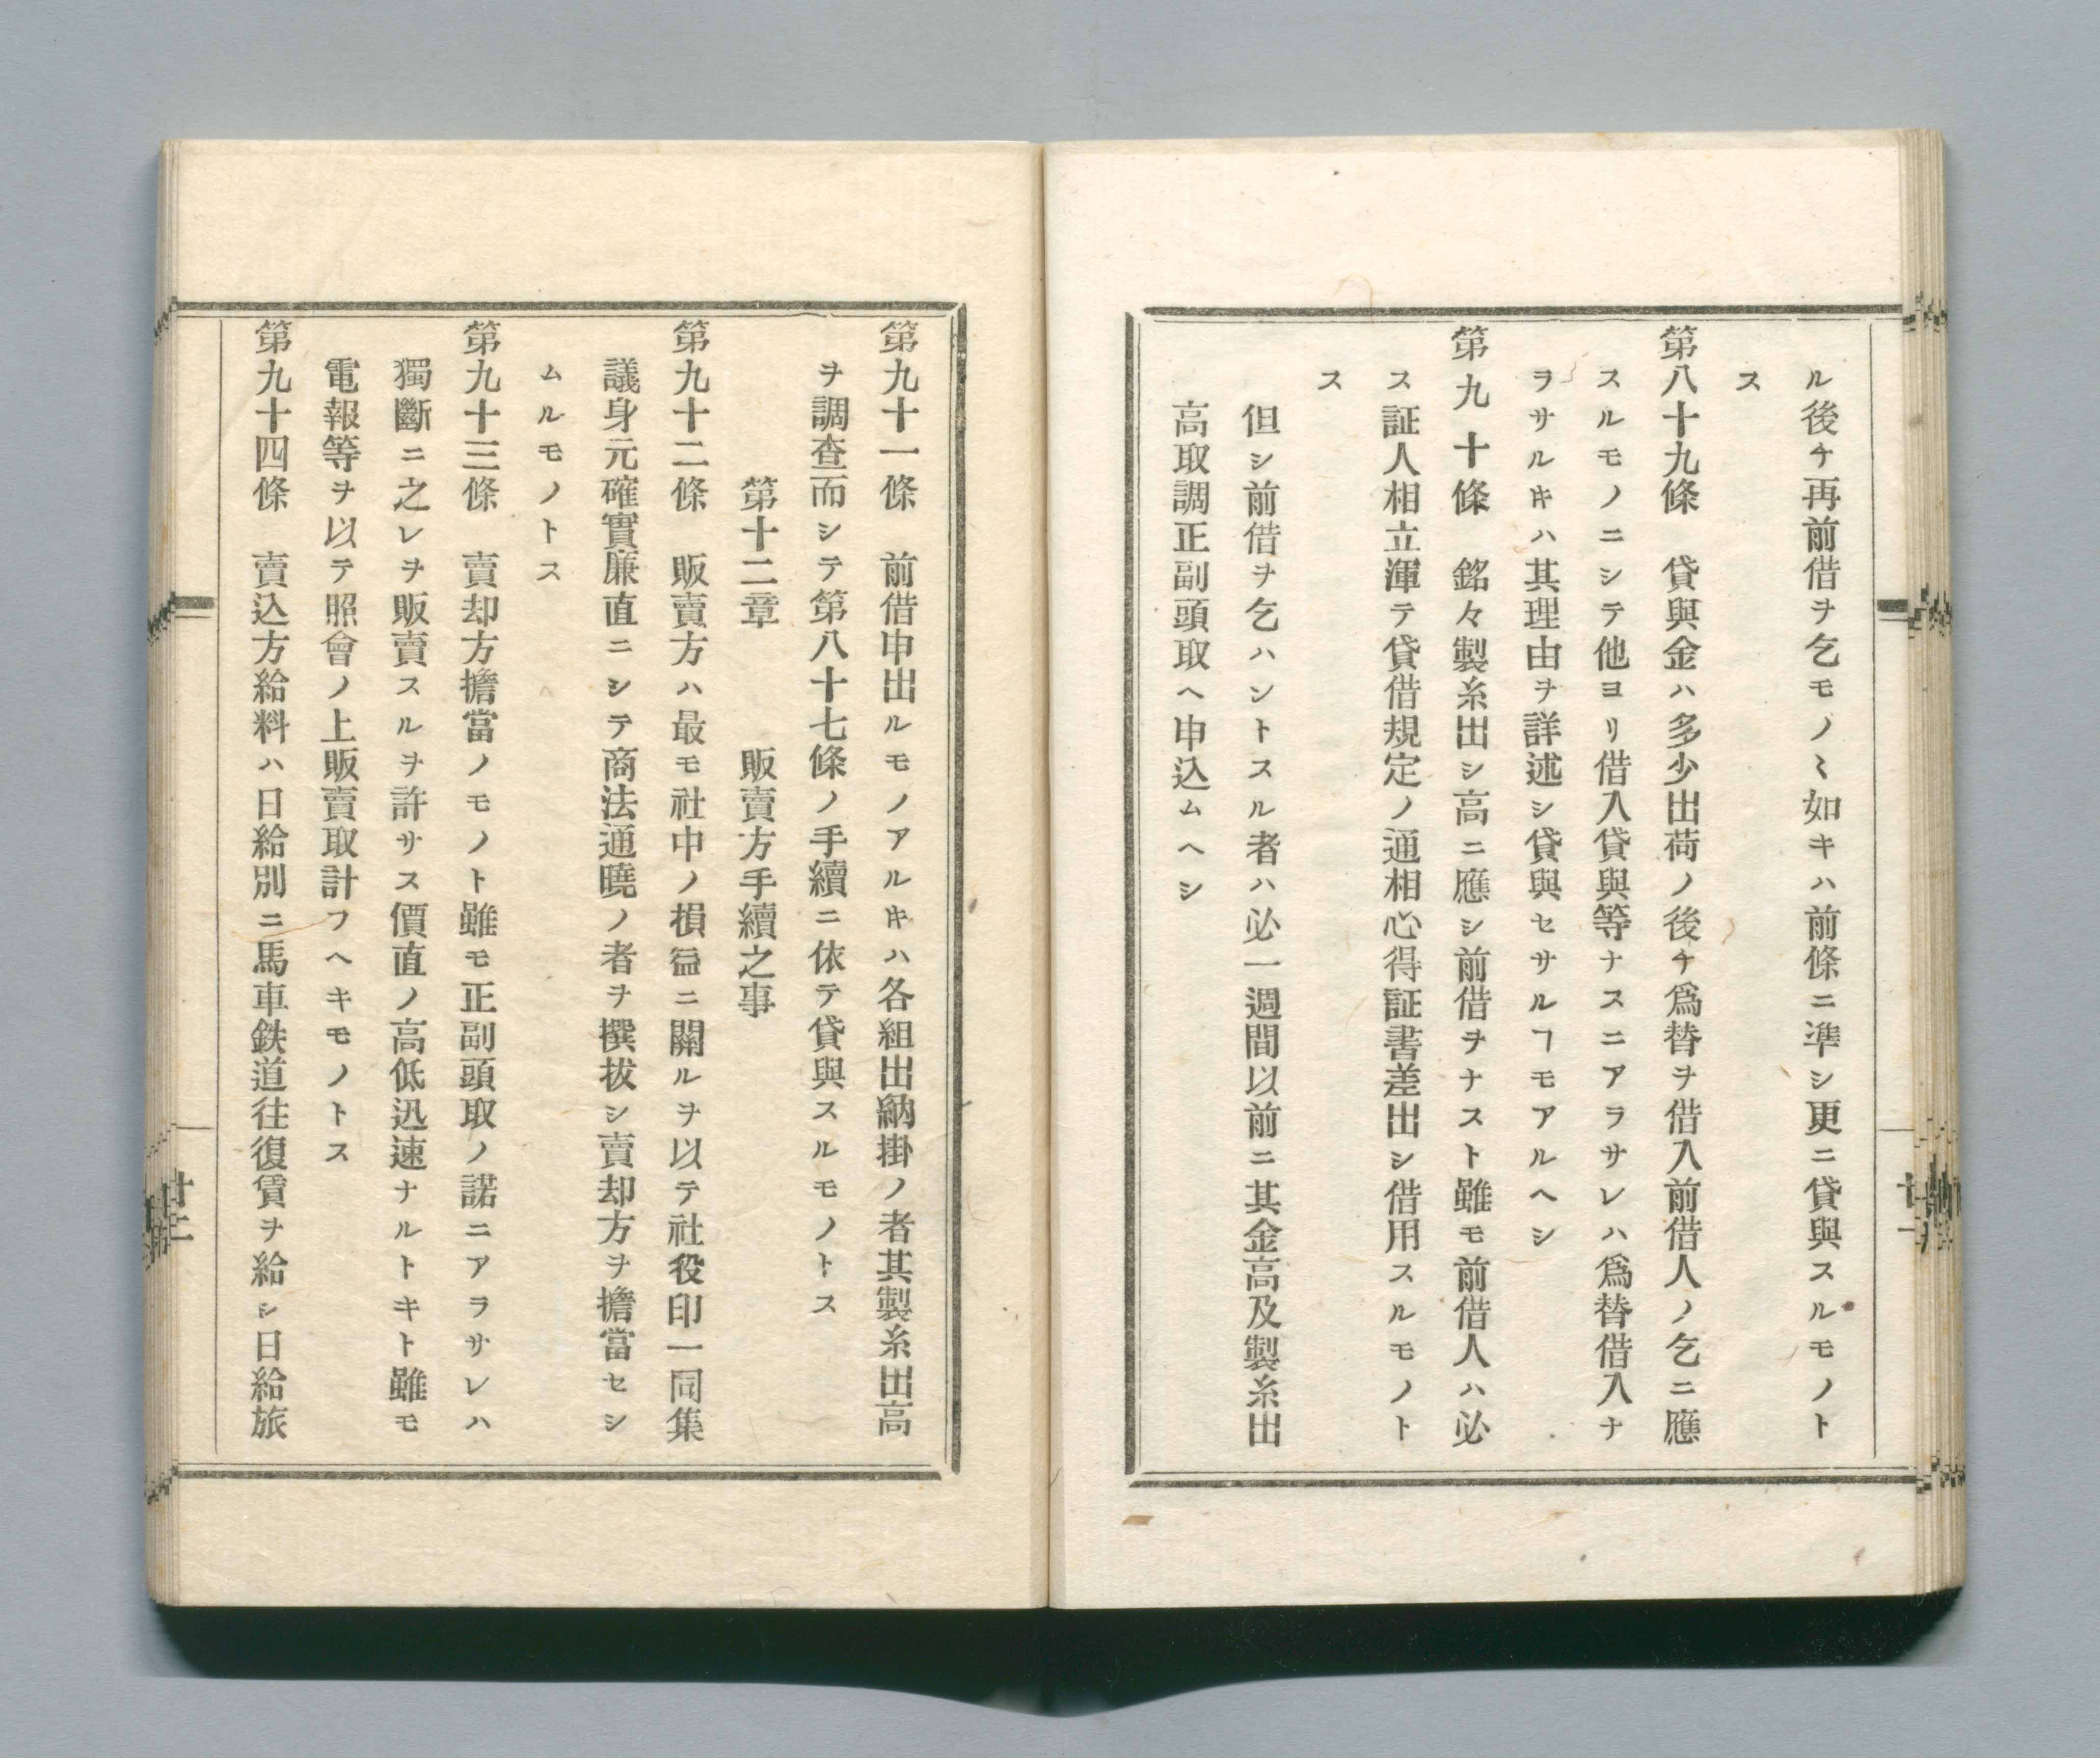 ル後チ再前借ヲ乞モノヽ如キハ前條ニ準シ更ニ貸與スルモノト
ス
第八十九條　貸與金ハ多少出荷ノ後チ爲替ヲ借入前借人ノ乞ニ應
スルモノニシテ他ヨリ借入貸與等ナスニアラサレハ爲替借入ナ
ラサルキハ其理由ヲ詳述シ貸與セサルヿモアルヘシ
第九十條　銘々製糸出シ高ニ應シ前借ヲナスト雖モ前借人ハ必
ス証人相立渾テ貸借規定ノ通相心得証書差出シ借用スルモノト
ス
但シ前借ヲ乞ハントスル者ハ必一週間以前ニ其金高及製糸出
高取調正副頭取ヘ申込ムヘシ
第九十一條　前借申出ルモノアルキハ各組出納掛ノ者其製糸出高
ヲ調査而シテ第八十七條ノ手續ニ依テ貸與スルモノトス
第十二章　販賣方手續之事
第九十二條　販賣方ハ最モ社中ノ損益ニ關ルヲ以テ社役印一同集
議身元確實廉直ニシテ商法通曉ノ者ヲ撰拔シ賣却方ヲ擔當セシ
ムルモノトス
第九十三條　賣却方擔當ノモノト雖モ正副頭取ノ諾ニアラサレハ
獨斷ニ之レヲ販賣スルヲ許サス價直ノ高低迅速ナルトキト雖モ
電報等ヲ以テ照會ノ上販賣取計フヘキモノトス
第九十四條　賣込方給料ハ日給別ニ馬車鉄道往復賃ヲ給シ日給旅
十二